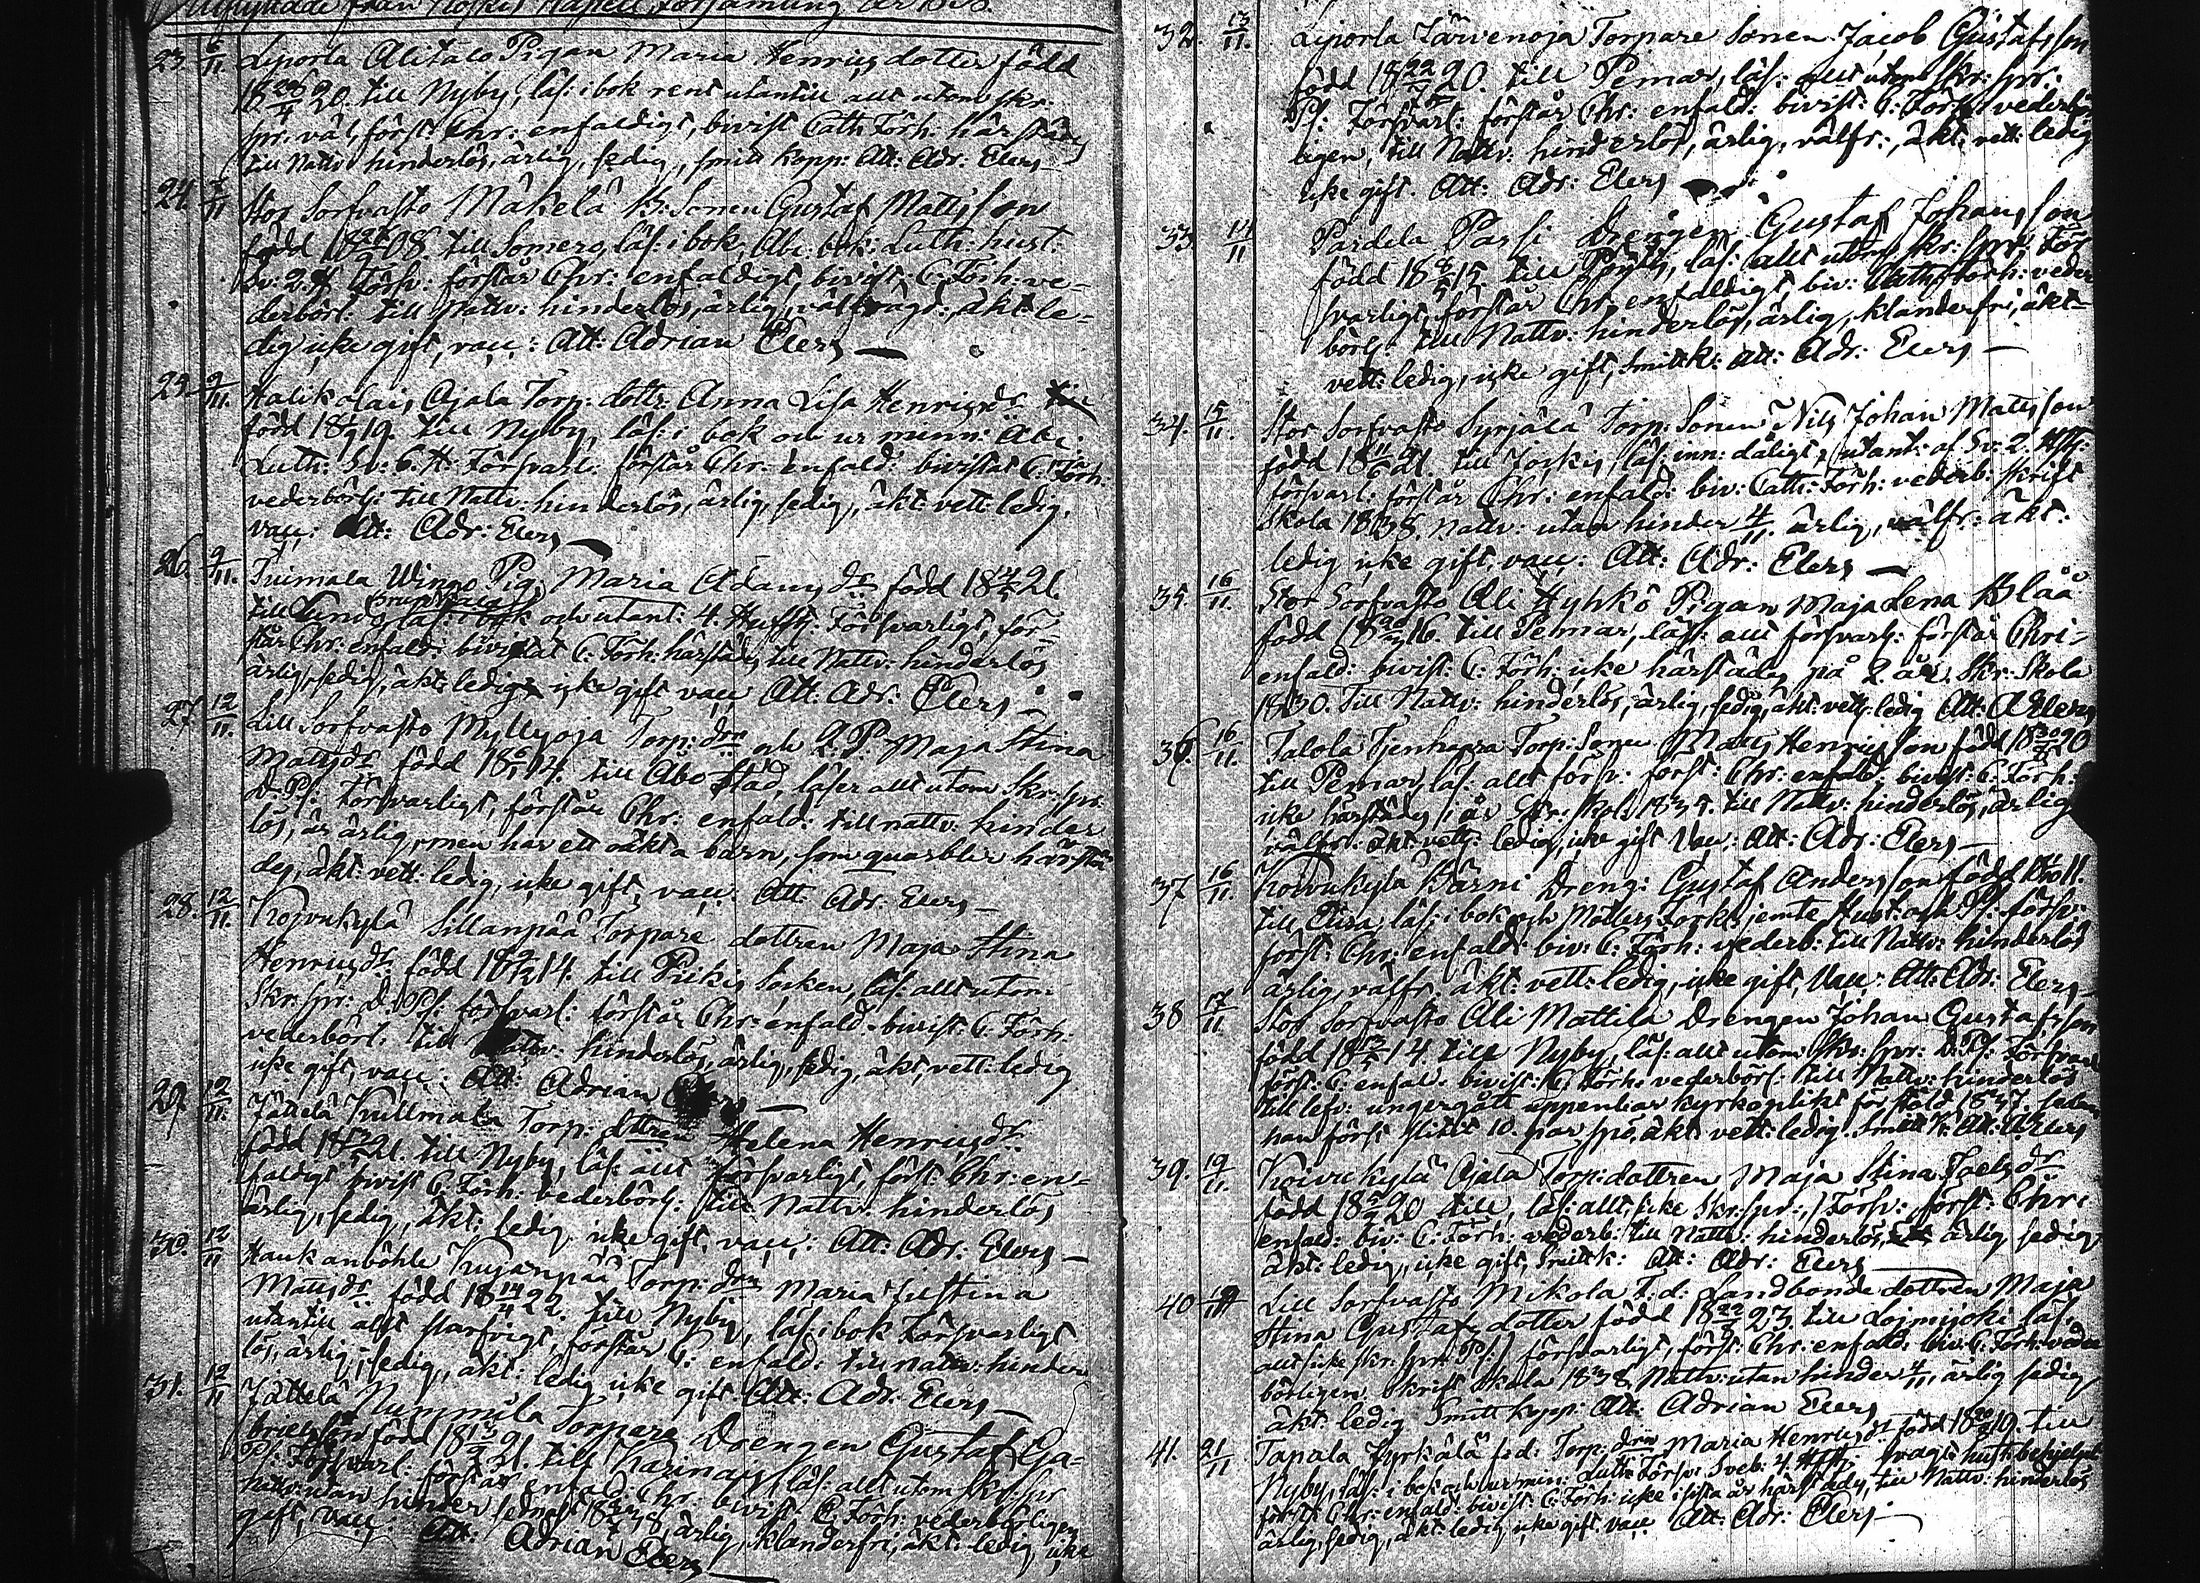 Utflyttade från Koskis Kapell Församling år 1838.
23. 6/11. Liporla Alitalo Pigan Maria Henricsdotter född
18 26/4 20. till Nyby, läs: i bok rent utantill allt utom Skr:
spr: väl, först: Chr: enfaldigt, bivist Cath Förh: härstädes
till Nattv: hinderlös, ärlig, sedig, smitt kopp: Att: Adr: Elers
24. 7/11 Stor Sorfvasto Mäkelä B: Sonen Gustaf Mattsson
född 18 08. till Somero, läs: i bok, Abc bok: Luth: hust:
Sv: 2 H Försv: förstår Chr: enfaldigt, bivist C: Förh: ve-
derbörl: till Nattv: hinderlös, ärlig, äkt: le-
dig icke gift, vacc: Att: Adrian Elers
25. 9/11. Halikolais Ajala Torp: dottr: Anna Lisa Henricsdr
född 18 19. till Nyby, läs: i bok och ur minn: Abc:
Luth: Sv: 6. H: Försvarl: förstår Chr: enfald: bivistat C: Förh:
vederbörl: till Nattv: hinderlös, ärlig, sedig, äkt: vett: ledig,
vacc: Att: Adr: Elers
26. 9/11. Tuimala Wingo Pig: Maria Adamsdr född 18 21.
till läs: i bok och utant: 4. Hufst: Försvarligt, för-
står Chr: enfald: bivistat C: Förh: härstädes till Nattv: hinderlös
ärlig, sedig, äkt: ledig icke gift vacc Att: Adr: Elers
27. 12/11. Lill Sorfvasto Myllyoja Torp: drn och Q.P. Maja Stina
Mattsdr född 18 14. till Åbo Stad, läser allt utom Skr: spr:
D. Ps: Försvarligt, förstår Chr: enfald: till nattv: hinder
lös, är ärlig, men har ett oäkta barn, som quarblir härstä
des, äkt: vett: ledig, icke gift, vacc: Att: Adr: Elers
28. 12/11. Koivukylä Sillanpää Torpare dottren Maja Stina
Henricsdr född 18 14. till Pikis Socken, läs: allt utom
Skr: spr: D. Ps: försvarl: förstår Chr: enfald: bivist: C: Förh:
vederbörl: till Nattv: hinderlös, ärlig, sedig, äkt, vett: ledig
icke gift, vacc: Att: Adrian Elers
29. 12/11. Jättelä Kullmala Torp: dottren Helena Henricsdr
född 18 21. till Nyby, läs: allt försvarligt, först: Chr: en-
faldigt bivist C: Förh: vederbörl: till Nattv: hinderlös
ärlig, sedig, äkt: ledig icke gift, vacc: Att: Adr: Elers
30. 12/11 Haukanböhle Kujanpää Torp: drn Maria Justina
Mattsdr född 18 14/4 22. till Nyby, läs: i bok Försvarligt
utantill allt förstår C: enfald: till nattv: hinder
lös, ärlig, sedig, äkt: ledig icke gift Att: Adr: Elers
31. 12/11 Jättelä Nummila Torpare Drengen Gustaf Ga-
brielsson född 18 21. till Karinais läs: allt utom Skr: spr
Ps: Försvarl: förstår enfald: Chr: bivist C: Förh: vederbörligen
nattv: utan hinder senast 1838, ärlig, klanderfri, äkt: ledig, icke
gift, vacc: Att: Adrian Elers
32. 13/11. Liporla Järvenoja Torpare Sonen Jacob Gustafsson
född 18 22 20. till Pemar, läs: allt utom Skr: spr:
Ps: Försvarl: förstår Chr: enfald: bivist: C: Förh: vederbör-
ligen, till Nattv: hinderlös, ärlig, välfr:, äkt: vett: ledig
icke gift. Att: Adr: Elers
33. 14/11 Pardela Passi Drengen Gustaf Johansson
född 18 15. till läs: allt utom Skr: spr: För
svarligt, förstår Chr, enfaldigt, biv: Cath: Förh: veder
börl: till Nattv: hinderlös, ärlig, klanderfri, äkt-
vett: ledig, icke gift, Smittk: Att: Adr: Elers
34. 15/11. Stor Sorfvasto Syrjälä Torp: Sonen Nils Johan Mattsson
född 18 21. till Jockis, läs: inn: dåligt, utant: af Sv: 2. Hfst:
försvarl: förstår Chr: enfald: biv: Cath: Förh: vederb: Skrift
Skola 1838. Nattv: utan hinder 4/11. ärlig, välfr: äkt:
ledig icke gift, vacc: Att: Adr: Elers
35. 16/11. Stor Sorfvasto Ali Hyhkö Pigan Maja Lena Blåå
född 18 16. till Pemar, läs: allt försvarl: förstår Chri-
enfald: bivist: C: Förh: icke härstädes på 2 år. Skr: Skola
1830. Till Nattv: hinderlös, ärlig, sedig, äkt: vett: ledig Att: A Elers
36. 16/11. Talola Torp: Sonen Matts Henricsson född 18 20
till Pemar, läs: allt försv: först: Chr: enfald: bivist: C: Förh:
icke härstädes i år Skr: Skola 1835. till Nattv: hinderlös, ärlig
välfr: äkt vett: ledig, icke gift Vacc: Att: Adr: Elers
37 16/11. Koivukylä Bärni Dreng: Gustaf Andersson född 18 11.
till läs: i bok och jemte Hust: och Ps: försv:
först: Chr: enfald: biv: C: Förh: vederb: till Nattv: hinderlös
ärlig, välfr: äkt: vett: ledig, icke gift, Vacc: Att: Adr: Elers
38 17/11. Stor Sorfvasto Ali Mattila Drengen Johan Gustafsson
född 18 14 till Nyby, läs: allt utom Skr: spr: D. Ps: Försvarl
först: C: enfald: bivist: C: Förh: vederbörl: till Nattv: hinderlös
till lefv: undergått uppenbar kyrkoplikt för stöld 1837 sedan
han först slitit 10. par spö. äkt: vett: ledig. Smitt K: Att: A: Elers
39. 19/11. Koivukylä Ajala Torp: dottren Maja Stina Joelsdr
född 18 20 till, läs: allt, icke Skr: spr:, Försv: först: Chr:
enfald: biv: C: Förh: vederb: till Nattv: hinderlös, ärlig sedig,
äkt: ledig, icke gift, Smittk: Att: Adr: Elers
40 Lill Sorfvasto Mikola F. d. Landbonde dottren Maja
Stina Gustafsdotter född 18 22 23 till Loimijoki läs,
allt icke Skr: spr: Ps: försvarligt, först: Chr: enfald: biv: C: Förh: veder
börligen Skrift Skola 1838. Nattv: utan hinder 4/11, ärlig sedig
äkt: ledig Smittkopp: Att: Adrian Elers
41. 21/11 Tapala Kyrkälä f: d: Torp: drn Maria Henricsdr född 18 19. till
Nyby, läs: i bok och ur minn: Luth: Försv: Sveb: 4. Hfst:
först: Chr: enfald: bivist: C: Förh: icke i sista år härstädes, till Nattv: hinderlös
ärlig, sedig, äkt: ledig icke gift, vacc Att: Adr: Elers